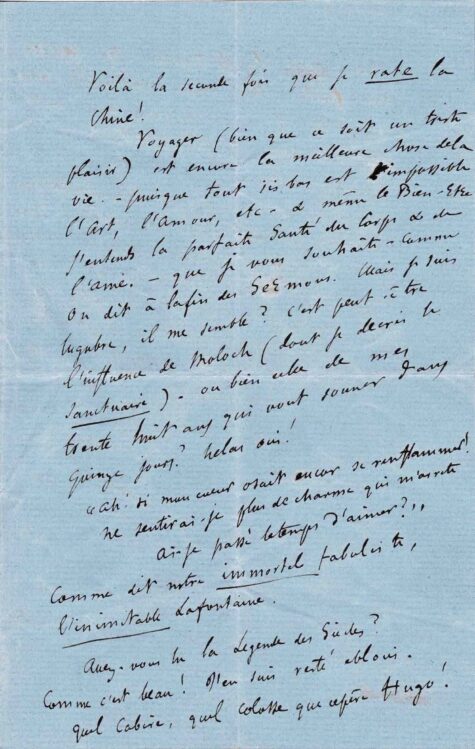 Voilà la seconde fois que je rate la
Chine!
Voyager (bien que ce soit un triste
plaisir) est encore la meilleure chose de la
vie. - puisque tout ici bas est impossible
l'Art, l'Amour, etc - & même le Bien-Etre
j'entends la parfaite Santé du Corps & de
l'âme. - que je vous souhaite - comme
on dit à la fin des Sermons. Mais je suis
lugubre, il me semble? C'est peut-être
l'influence de Moloch (dont je décris le
sanctuaire) - ou bien celle de mes
trente huit ans qui vont sonner dans
quinze jours? helas oui!
"ah! si mon cœur osait encor se renflammer!
ne sentirai-je plus de charme qui m'arrête
Ai-je passé le temps d'aimer?"
Comme dit notre immortel fabuliste,
l'inimitable Lafontaine.
Avez-vous lu la Légende des Siècles?
Comme c'est beau! J'en suis resté ébloui.
quel Cabire, quel colosse que ce père Hugo!